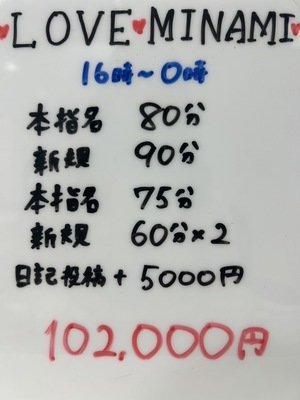 LOVE♥MINAMI♥
16時~0時
本指名 80分
新規 90分
本指名 75分
新規 60分×2
日記投稿 + 5000円
102,000円